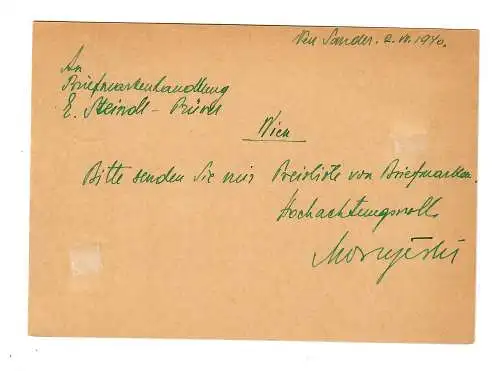 Neu Sandez. 2. IV. 1940.
An
Briefmarkenhandlung
E. Steindl -
Wien
Bitte senden Sie mir Preisliste von Briefmarken.
Hochachtungsvoll